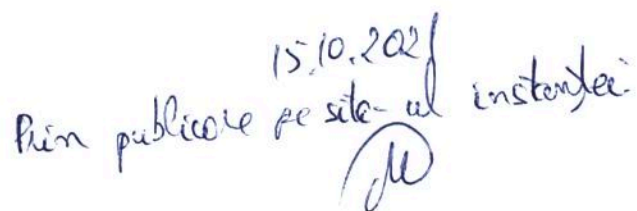 15.10.2021
Prin publicare pe site-ul instanței.